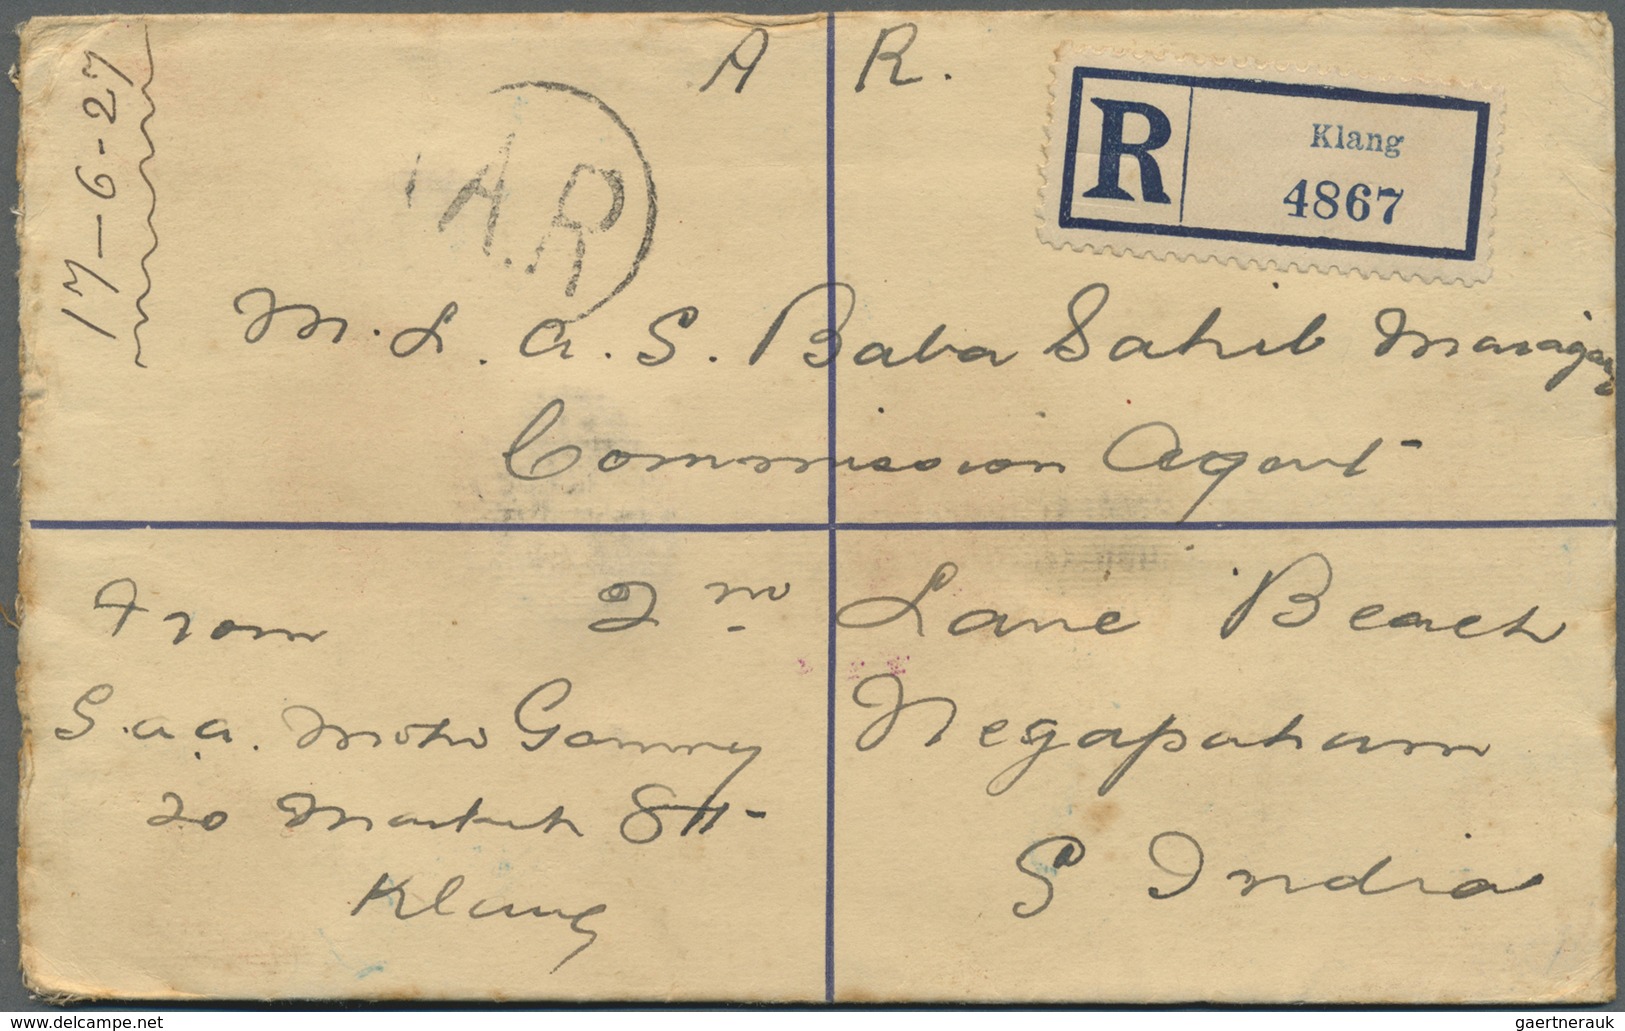 17-6-27
A R.
A.R
R Klang
4867
M. L. A. S. Baba Sahib
Commission Agent
2nd Lane Beach
Negapatam
S India
From
S. A. A.
20 Market Stt-
Klang
© www.delcampe.net
gaertnerauk